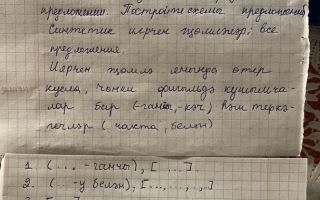 предложении. Постройте схемы предложений
Синтетик иярчен җөмләләр, все
предложения.
Иярчен җөмлә янында өтер
куела, чөнки фигыльдә кушымча-
лар бар (-ганчы, -кәч) һәм теркә-
гечләр ( чакта, белән)
1. (... -ганчы), [ ... ].
2. (...-у белән), [...,...,...]